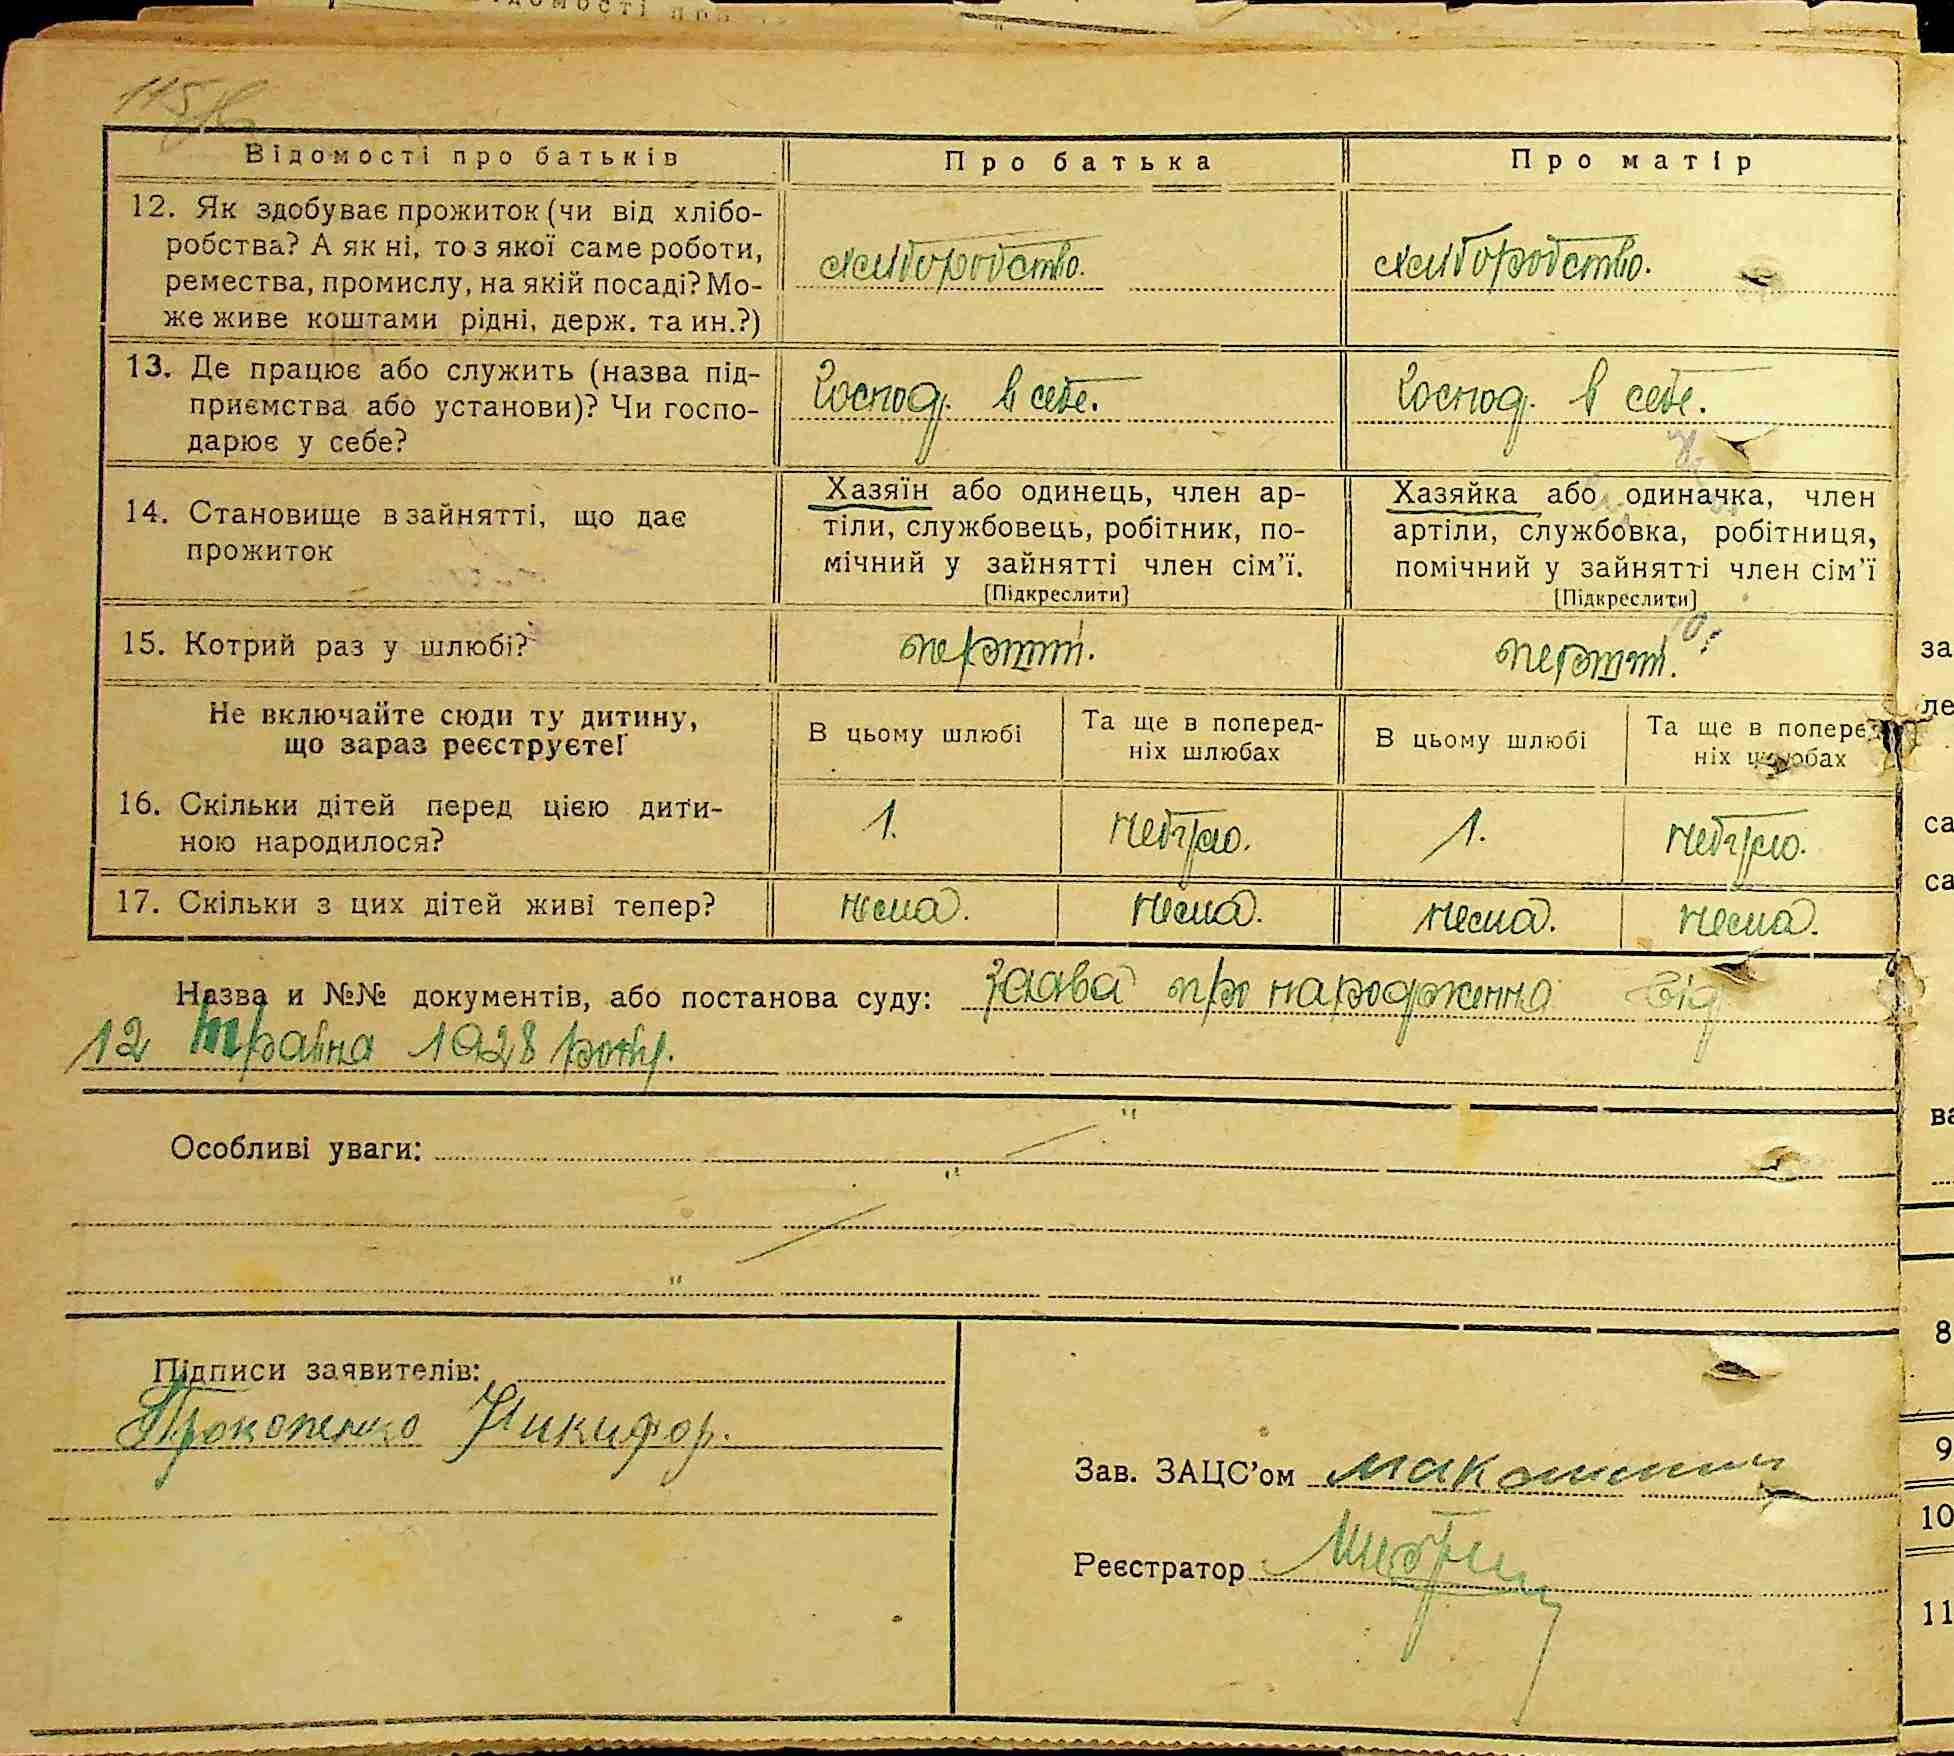 115
Відомості про батьків
Про батька
Про матір
12. Як здобуває прожиток (чи від хлібо-
робства? А як ні, то з якої саме роботи,
ремества, промислу, на якій посаді? Мо-
же живе коштами рідні, держ. та ин.?)
хліборобство.
хліборобство.
13. Де працює або служить (назва під-
приємства або установи)? Чи госпо-
дарює у себе?
Господ. в себе.
Господ. в себе.
14. Становище в зайнятті, що дає
прожиток
Хазяїн або одинець, член ар-
тіли, службовець, робітник, по-
мічний у зайнятті член сім’ї.
[Підкреслити]
Хазяйка або одиначка, член
артіли, службовка, робітниця,
помічний у зайнятті член сім’ї
[Підкреслити]
15. Котрий раз у шлюбі?
перший.
перший.
Не включайте сюди ту дитину,
що зараз реєструєте!
В цьому шлюбі
Та ще в поперед-
ніх шлюбах
В цьому шлюбі
Та ще в поперед-
ніх шлюбах
16. Скільки дітей перед цією дити-
ною народилося?
1.
небуло.
1.
небуло.
17. Скільки з цих дітей живі тепер?
нема.
нема.
нема.
нема.
Назва и №№ документів, або постанова суду: Заява про народження від
12 травня 1928 року.
Особливі уваги:
Підписи заявителів:
Прокопенко Никифор.
Зав. ЗАЦС’ом
Реєстратор
за
ле
са
са
ва
8
9
10
11